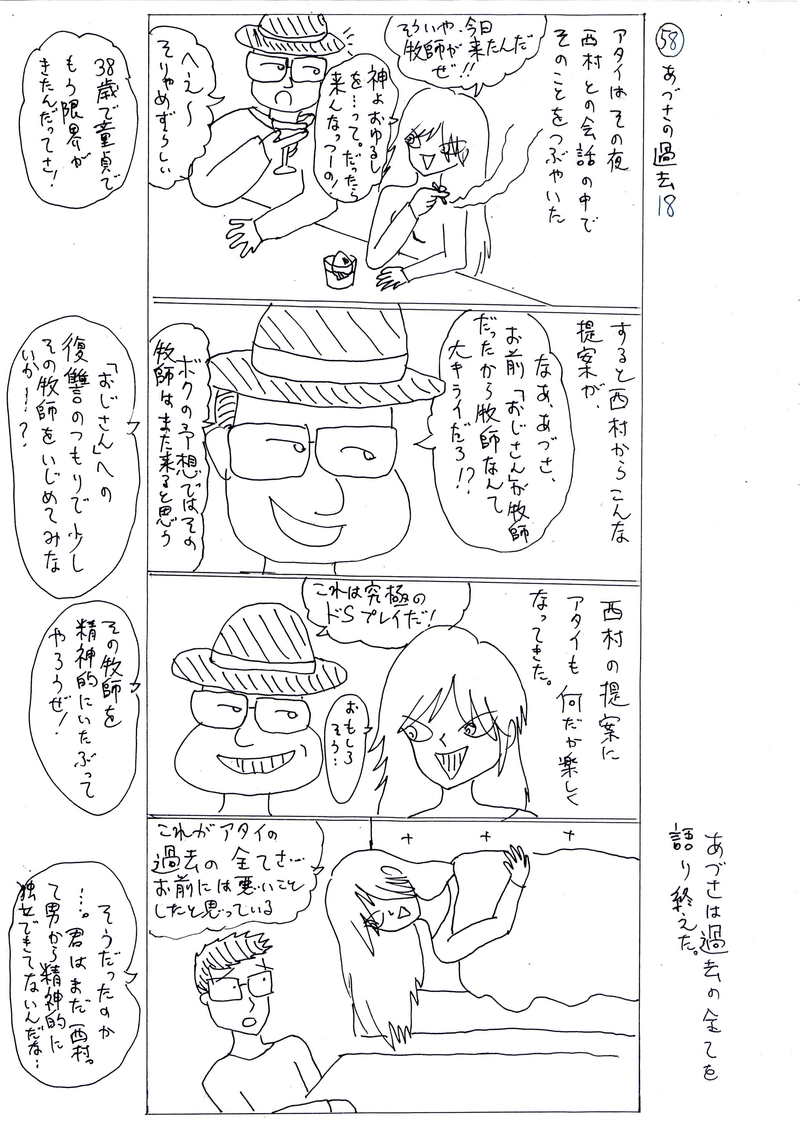 58
あづさの過去18
アタイはその夜
西村との会話の中で
そのことをつぶやいた
そういや、今日
牧師が来たんだ
ぜ!!
神よおゆるし
を…って。だったら
来んなっつーの!
へえ〜
そりゃめずらしい
38歳で童貞で
もう限界が
きたんだってさ!
すると西村からこんな
提案が、
なあ、あづさ、
お前「おじさん」が牧師
だったから牧師なんて
大キライだろ!?
ボクの予想ではその
牧師はまた来ると思う
「おじさん」への
復讐のつもりで少し
その牧師をいじめてみな
いか…?
西村の提案に
アタイも何だか楽しく
なってきた。
これは究極の
ドSプレイだ!
おもしろ
そう…
その牧師を
精神的にいたぶって
やろうぜ!
あづさは過去の全てを
語り終えた。
これがアタイの
過去の全てさ…
お前には悪いこと
したと思っている
そうだったのか
…。君はまだ西村っ
て男から精神的に
独立できてないんだな…